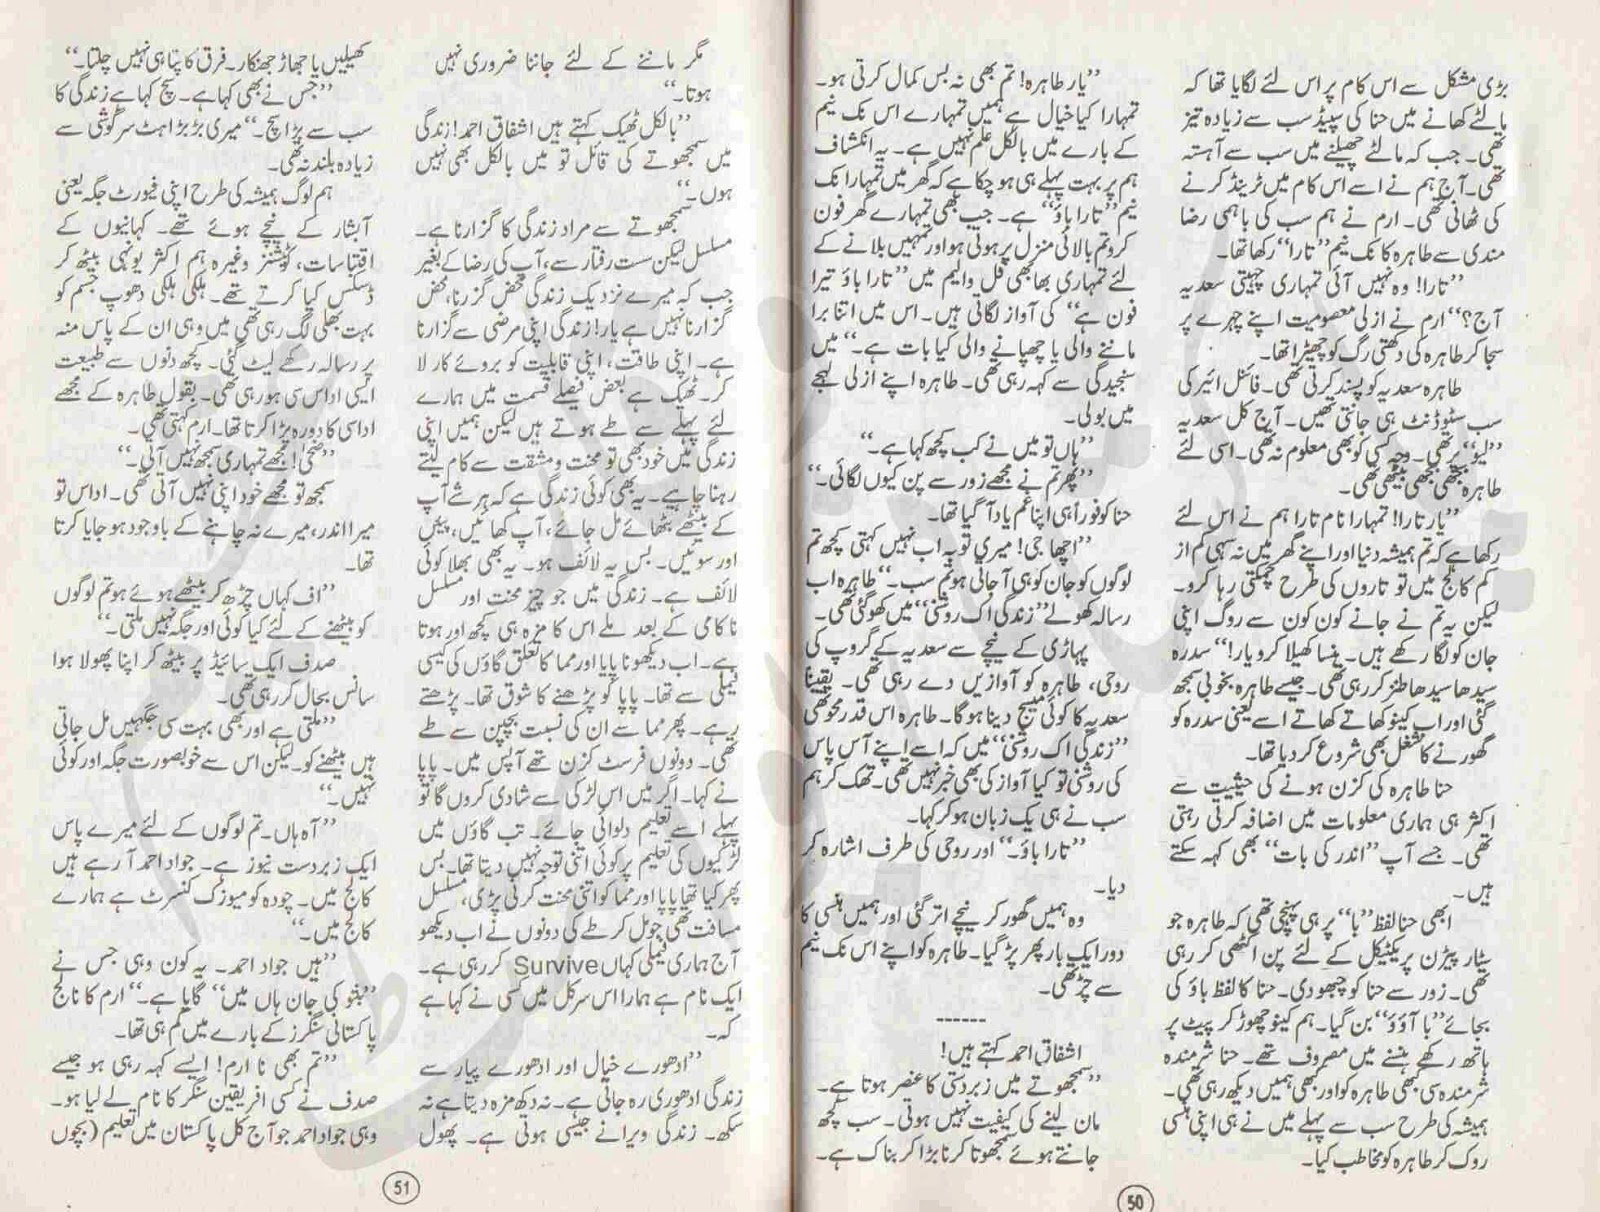 بڑی مشکل سے اس کام پر اس لئے لگایا تھا کہ
مالٹے کھانے میں حنا کی سپیڈ سب سے زیادہ تیز
تھی۔ جب کہ مالٹے چھیلنے میں سب سے آہستہ
تھی۔ آج ہم نے اسے اس کام میں ٹرینڈ کرنے
کی ٹھانی تھی۔ ارم نے ہم سب کی باہمی رضا
مندی سے طاہرہ کا نک نیم ”تارا“ رکھا تھا۔
”تارا! وہ نہیں آئی تمہاری چہیتی سعدیہ
آج؟“ ارم نے ازلی معصومیت اپنے چہرے پر
سجا کر طاہرہ کی دکھتی رگ کو چھیڑا تھا۔
طاہرہ سعدیہ کو پسند کرتی تھی۔ فائنل ائیر کی
سب سٹوڈنٹ ہی جانتی تھیں۔ آج کل سعدیہ
”لیو“ پر تھی۔ وجہ کسی کو بھی معلوم نہ تھی۔ اسی لئے
طاہرہ بجھی بجھی بیٹھی تھی۔
”یار تارا! تمہارا نام تارا ہم نے اس لئے
رکھا ہے کہ تم ہمیشہ دنیا اور اپنے گھر میں نہ سہی کم از
کم کالج میں تو تاروں کی طرح چمکتی رہا کرو۔
لیکن یہ تم نے جانے کون کون سے روگ اپنی
جان کو لگا رکھے ہیں۔ ہنسا کھیلا کرو یار!“ سدرہ
سیدھا سیدھا طنز کر رہی تھی۔ جیسے طاہرہ بخوبی سمجھ
گئی اور اب کینو کھاتے کھاتے اسے یعنی سدرہ کو
گھورنے کا شغل بھی شروع کر دیا تھا۔
حنا طاہرہ کی کزن ہونے کی حیثیت سے
اکثر ہی ہماری معلومات میں اضافہ کرتی رہتی
تھی۔ جسے آپ ”اندر کی بات“ بھی کہہ سکتے
ہیں۔
ابھی حنا لفظ ”با“ پر ہی پہنچی تھی کہ طاہرہ جو
پیٹرن پریکٹیکل کے لئے پن اکٹھی کر رہی
تھی۔ زور سے حنا کو چبھو دی۔ حنا کا لفظ باؤ کی
بجائے ”با آؤؤ“ بن گیا۔ ہم کینو چھوڑ کر پیٹ پر
ہاتھ رکھے ہنسنے میں مصروف تھے۔ حنا شرمندہ
شرمندہ سی بھی طاہرہ کو اور بھی ہمیں دیکھ رہی تھی۔
ہمیشہ کی طرح سب سے پہلے میں نے ہی اپنی ہنسی
روک کر طاہرہ کو مخاطب کیا۔
”یار طاہرہ! تم بھی نہ بس کمال کرتی ہو۔
تمہارا کیا خیال ہے ہمیں تمہارے اس نک نیم
کے بارے میں بالکل علم نہیں ہے۔ یہ انکشاف
ہم پر بہت پہلے ہی ہو چکا ہے کہ گھر میں تمہارا نک
نیم ”تارا باؤ“ ہے۔ جب بھی تمہارے گھر فون
کرو تم بالائی منزل پر ہوتی ہو اور تمہیں بلانے کے
لئے تمہاری بھابھی فل والیم میں ”تارا باؤ تیرا
فون ہے“ کی آواز لگاتی ہیں۔ اس میں اتنا برا
ماننے والی یا چھپانے والی کیا بات ہے۔“ میں
سنجیدگی سے کہہ رہی تھی۔ طاہرہ اپنے ازلی لہجے
میں بولی۔
”ہاں تو میں نے کب کچھ کہا ہے۔“
”پھر تم نے مجھے زور سے پن کیوں لگائی۔“
حنا کو فوراً ہی اپنا غم یاد آ گیا تھا۔
”اچھا جی! میری توبہ اب نہیں کہتی کچھ تم
لوگوں کو جان کو ہی آ جاتی ہو تم سب۔“ طاہرہ اب
رسالہ کھولے ”زندگی اک روشنی“ میں کھو گئی تھی۔
پہاڑی کے نیچے سے سعدیہ کے گروپ کی
روحی، طاہرہ کو آوازیں دے رہی تھی۔ یقیناً
سعدیہ کا کوئی میسج دینا ہو گا۔ طاہرہ اس قدر محو تھی
”زندگی اک روشنی“ میں کہ اسے اپنے آس پاس
کی روشنی تو کیا آواز کی بھی خبر نہیں تھی۔ تھک کر ہم
سب نے ہی یک زبان ہو کر کہا۔
”تارا باؤ۔“ اور روحی کی طرف اشارہ کر
دیا۔
وہ ہمیں گھور کر نیچے اتر گئی اور ہمیں ہنسی کا
دورا یک بار پھر پڑ گیا۔ طاہرہ کو اپنے اس نک نیم
سے چڑ تھی۔
------
اشفاق احمد کہتے ہیں!
”سمجھوتے میں زبردستی کا عنصر ہوتا ہے۔
مان لینے کی کیفیت نہیں ہوتی۔ سب کچھ
جانتے ہوئے سمجھوتا کرنا بڑا کربناک ہے۔
50
مگر ماننے کے لئے جاننا ضروری نہیں
ہوتا۔“
”بالکل ٹھیک کہتے ہیں اشفاق احمد! زندگی
میں سمجھوتے کی قائل تو میں بالکل بھی نہیں
ہوں۔“
سمجھوتے سے مراد زندگی کا گزارنا ہے۔
مسلسل لیکن ست رفتار سے، آپ کی رضا کے بغیر
جب کہ میرے نزدیک زندگی محض گزرنا، محض
گزارنا نہیں ہے یار! زندگی اپنی مرضی سے گزارنا
ہے۔ اپنی طاقت، اپنی قابلیت کو بروئے کار لا
کر۔ ٹھیک ہے بعض فیصلے قسمت میں ہمارے
لئے پہلے سے طے ہوتے ہیں لیکن ہمیں اپنی
زندگی میں خود بھی تو محنت و مشقت سے کام لیتے
رہنا چاہیے۔ یہ بھی کوئی زندگی ہے کہ ہر شے آپ
کے بیٹھے بٹھائے مل جائے، آپ کھائیں، پیئں
اور سوئیں۔ بس یہ لائف ہو۔ یہ بھی بھلا کوئی
لائف ہے۔ زندگی میں جو چیز محنت اور مسلسل
ناکامی کے بعد ملے اس کا مزہ ہی کچھ اور ہوتا
ہے۔ اب دیکھو نا پاپا اور مما کا تعلق گاؤں کی کیسی
فیملی سے تھا۔ پاپا کو پڑھنے کا شوق تھا۔ پڑھتے
رہے۔ پھر مما سے ان کی نسبت بچپن سے طے
تھی۔ دونوں فرسٹ کزن تھے آپس میں۔ پاپا
نے کہا۔ اگر میں اس لڑکی سے شادی کروں گا تو
پہلے اسے تعلیم دلوائی جائے۔ تب گاؤں میں
لڑکیوں کی تعلیم پر کوئی اتنی توجہ نہیں دیتا تھا۔ بس
پھر کیا تھا پاپا اور مما کو اتنی محنت کرنی پڑی، مسلسل
مسافت تھی جو مل کر طے کی دونوں نے اب دیکھو
آج ہماری فیملی کہاں Survive کر رہی ہے۔
ایک نام ہے ہمارا اس سرکل میں کسی نے کہا ہے
کہ۔
”ادھورے خیال اور ادھورے پیار سے
زندگی ادھوری رہ جاتی ہے۔ نہ دکھ مزہ دیتا ہے نہ
سکھ۔ زندگی ویرانے جیسی ہوتی ہے۔ پھول
کھلیں یا جھاڑ جھنکار۔ فرق کا پتا ہی نہیں چلتا۔“
”جس نے بھی کہا ہے۔ سچ کہا ہے زندگی کا
سب سے بڑا سچ۔“ میری بڑبڑاہٹ سرگوشی سے
زیادہ بلند نہ تھی۔
ہم لوگ ہمیشہ کی طرح اپنی فیورٹ جگہ یعنی
آبشار کے نیچے ہوئے تھے۔ کہانیوں کے
اقتباسات، کوٹیشنز وغیرہ ہم اکثر یونہی بیٹھ کر
ڈسکس کیا کرتے تھے۔ ہلکی ہلکی دھوپ جسم کو
بہت بھلی لگ رہی تھی میں وہی ان کے پاس منہ
پر رسالہ رکھے لیٹ گئی۔ کچھ دنوں سے طبیعت
ایسی اداس سی ہو رہی تھی۔ بقول طاہرہ کے مجھے
اداسی کا دورہ پڑا کرتا تھا۔ ارم کہتی تھی۔
”ضحی! مجھے تمہاری سمجھ نہیں آتی۔“
سمجھ تو مجھے خود اپنی نہیں آتی تھی۔ اداس تو
میرا اندر، میرے نہ چاہنے کے باوجود ہو جایا کرتا
تھا۔
”اف کہاں چڑھ کر بیٹھے ہوئے ہو تم لوگوں
کو بیٹھنے کے لئے کیا کوئی اور جگہ نہیں ملتی۔“
صدف ایک سائیڈ پر بیٹھ کر اپنا پھولا ہوا
سانس بحال کر رہی تھی۔
”ملتی ہے اور بھی بہت سی جگہیں مل جاتی
ہیں بیٹھنے کو۔ لیکن اس سے خوبصورت جگہ اور کوئی
نہیں۔“
”آہ ہاں۔ تم لوگوں کے لئے میرے پاس
ایک زبردست نیوز ہے۔ جواد احمد آ رہے ہیں
کالج میں۔ چودہ کو میوزک کنسرٹ ہے ہمارے
کالج میں۔“
”ہیں جواد احمد۔ یہ کون وہی جس نے
”بنتو کی جان ہاں میں“ گایا ہے۔“ ارم کا نالج
پاکستانی سنگرز کے بارے میں کم ہی تھا۔
”تم بھی نا ارم! ایسے کہہ رہی ہو جیسے
صدف نے کسی افریقین سنگر کا نام لے لیا ہو۔
وہی جواد احمد جو آج کل پاکستان میں تعلیم (بچوں
51